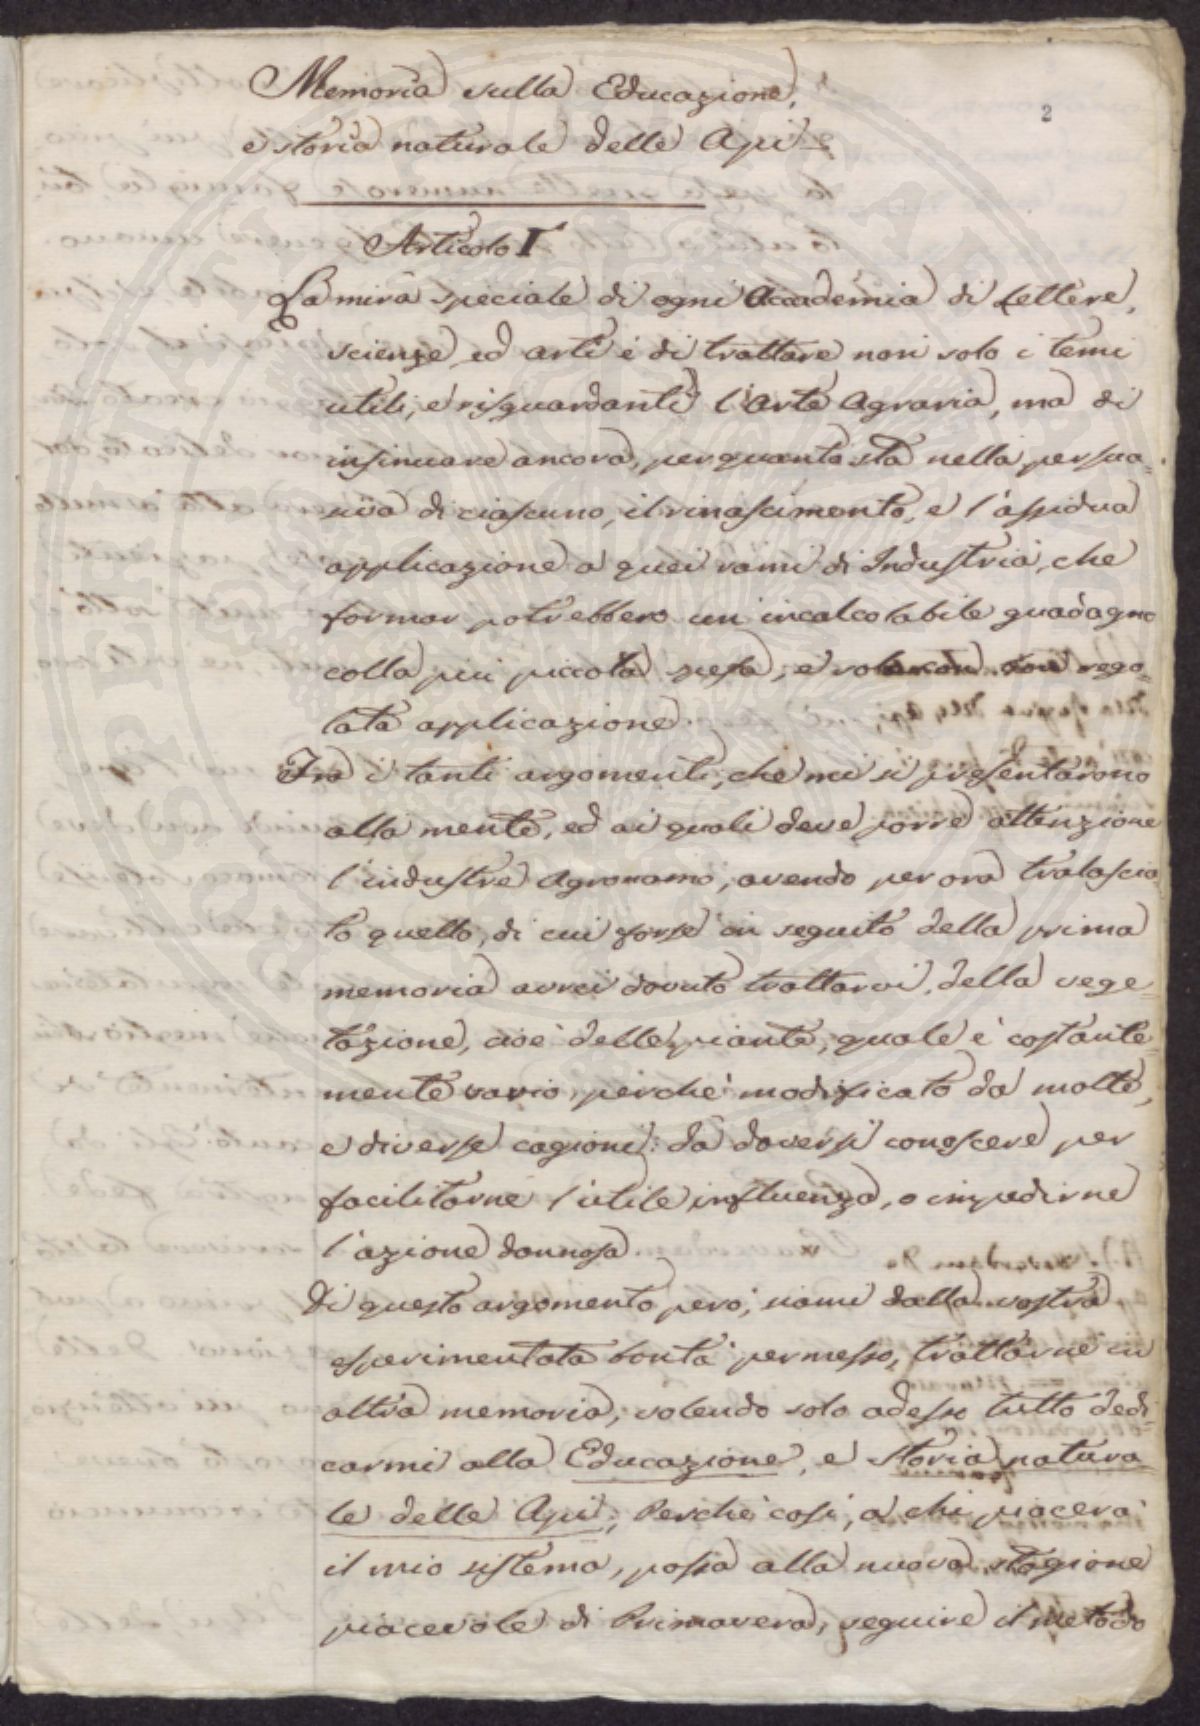 Memoria sulla Educazione,
e storia naturale delle Api
2
Articolo I°
La mira speciale di ogni Accademia di Lettere,
scienze, ed arti è di trattare non solo i temi
utili, e risguardanti l'Arte Agraria, ma di
insinuare ancora, per quanto sta nella persua=
siva di ciascuno, il rinascimento, e l'assidua
applicazione a quei rami di Industria, che
formar potrebbero un incalcolabile guadagno
colla piu piccola spesa, e solo con una rego=
lata applicazione.
Fra i tanti argomenti, che mi si presentarono
alla mente, ed ai quali deve porre attenzione
l'industre Agronomo, avendo per ora tralascia
to quello, di cui forse in seguito della prima
memoria avrei dovuto trattarvi, della vege=
tazione, cioè delle piante, quale è costante=
mente vario, perchè modificato da molte,
e diverse cagioni: da doversi conoscere per
facilitarne l'utile influenza, o impedirne
l'azione dannosa.
Di questo argomento però, siami dalla vostra
esperimentata bontà permesso, trattarne in
altra memoria, volendo solo adesso tutto dedi=
carmi alla Educazione, e Storia natura=
le delle Api; Perchè così, a chi piacerà
il mio sistema, possa alla nuova stagione
piacevole di Primavera, seguire il metodo